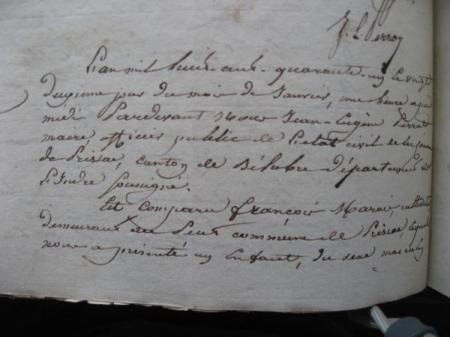 J. L. Perrot
L'an mil huit cent quarante un le vingt
deuxieme jour du mois de Janvier, une heure apres
midi Pardevant Nous Jean Eugène Perrot
maire officier public de l'état civil de la commune
de Prissac, canton de Bélabre Département de
L'indre soussigné.
Est comparu françois Marai, cultivateur
demeurant au commune de Prissac lequel
nous a présenté un Enfant, du sexe masculin